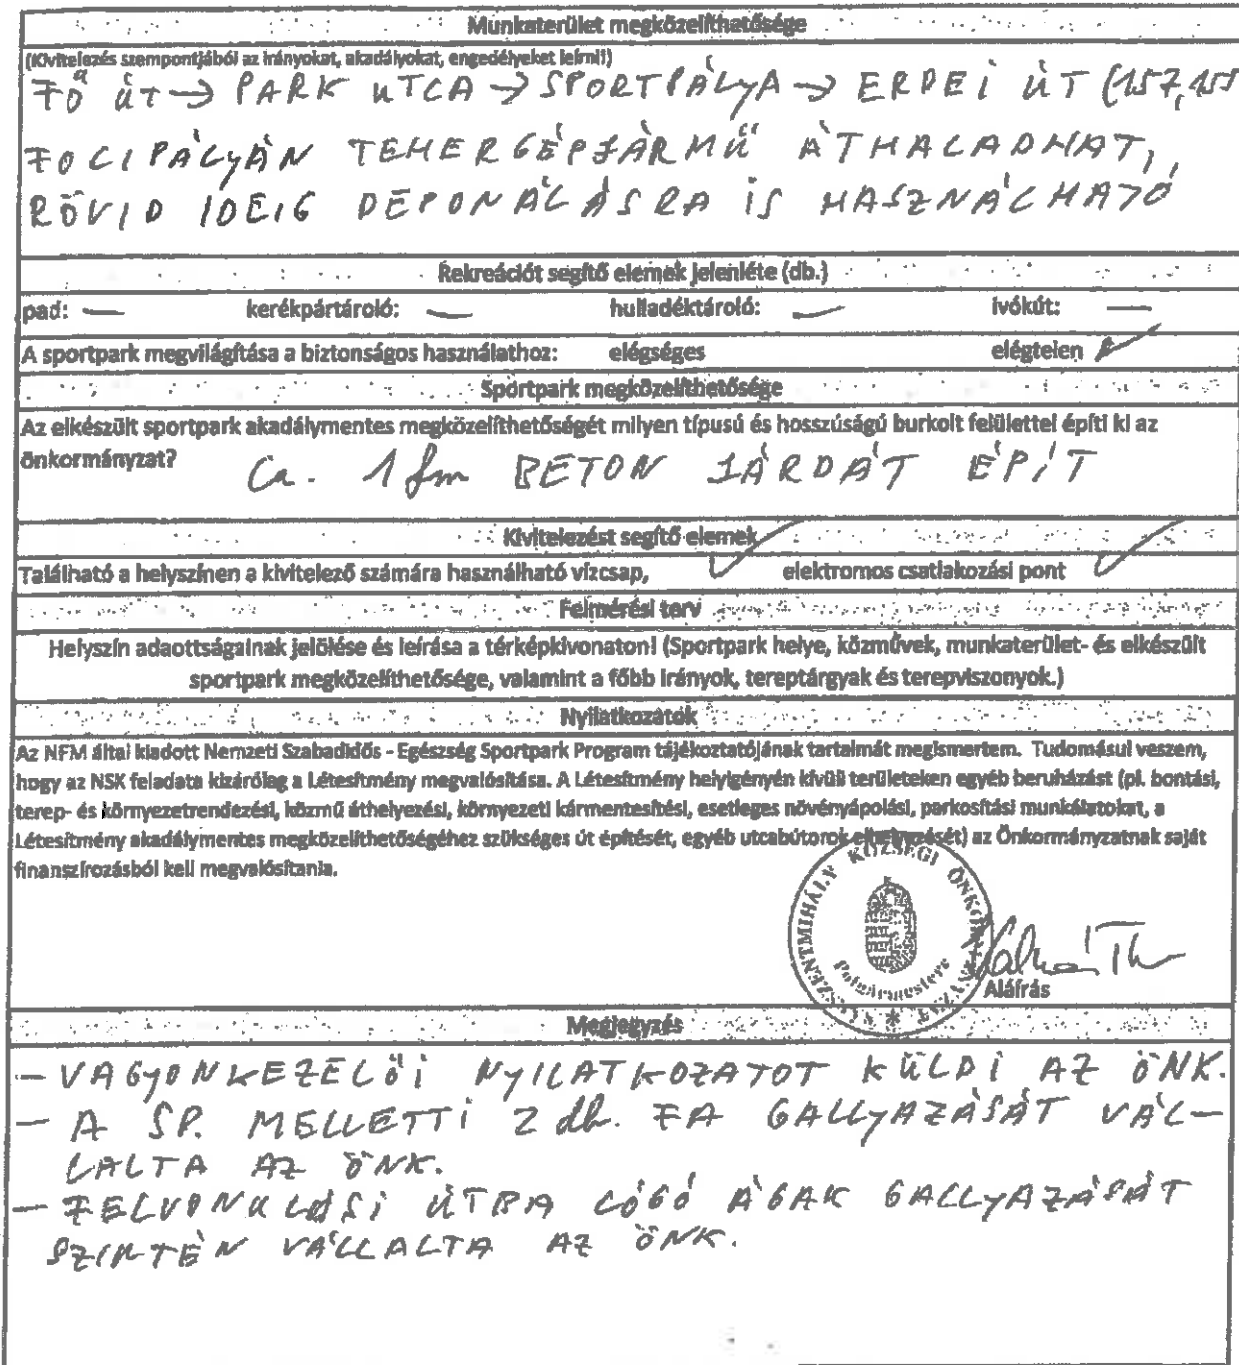 Munkaterület megközelíthetősége
(Kivitelezés szempontjából az irányokat, akadályokat, engedélyeket leírni!)
FŐ ÚT → PARK UTCA → SPORTPÁLYA → ERDEI ÚT (157,
FOCIPÁLYÁN TEHERGÉPJÁRMŰ ÁTHALADHAT,
RÖVID IDEIG DEPONÁLÁSRA IS HASZNÁLHATÓ
Rekreációt segítő elemek jelenléte (db.)
pad: — kerékpártároló: — hulladéktároló: — ivókút: —
A sportpark megvilágítása a biztonságos használathoz: elégséges elégtelen ✓
Sportpark megközelíthetősége
Az elkészült sportpark akadálymentes megközelíthetőségét milyen típusú és hosszúságú burkolt felülettel építi ki az
önkormányzat? Ca. 1 fm BETON JÁRDÁT ÉPÍT
Kivitelezést segítő elemek
Található a helyszínen a kivitelező számára használható vízcsap, ✓ elektromos csatlakozási pont ✓
Felmérési terv
Helyszín adaottságainak jelölése és leírása a térképkivonaton! (Sportpark helye, közművek, munkaterület- és elkészült
sportpark megközelíthetősége, valamint a főbb irányok, tereptárgyak és terepviszonyok.)
Nyilatkozatok
Az NFM által kiadott Nemzeti Szabadidős - Egészség Sportpark Program tájékoztatójának tartalmát megismertem. Tudomásul veszem,
hogy az NSK feladata kizárólag a Létesítmény megvalósítása. A Létesítmény helyigényén kívüli területeken egyéb beruházást (pl. bontási,
terep- és környezetrendezési, közmű áthelyezési, környezeti kármentesítési, esetleges növényápolási, parkosítási munkálatokat, a
Létesítmény akadálymentes megközelíthetőségéhez szükséges út építését, egyéb utcabútorok elhelyezését) az Önkormányzatnak saját
finanszírozásból kell megvalósítania.
KÖZSÉGI
Polgármestere
Aláírás
Megjegyzés
- VAGYONKEZELŐI NYILATKOZATOT KÜLDI AZ ÖNK.
- A SP. MELLETTI 2 db. FA GALLYAZÁSÁT VÁL-
LALTA AZ ÖNK.
- FELVONULÁSI ÚTBA LÓGÓ ÁGAK GALLYAZÁSÁT
SZINTÉN VÁLLALTA AZ ÖNK.